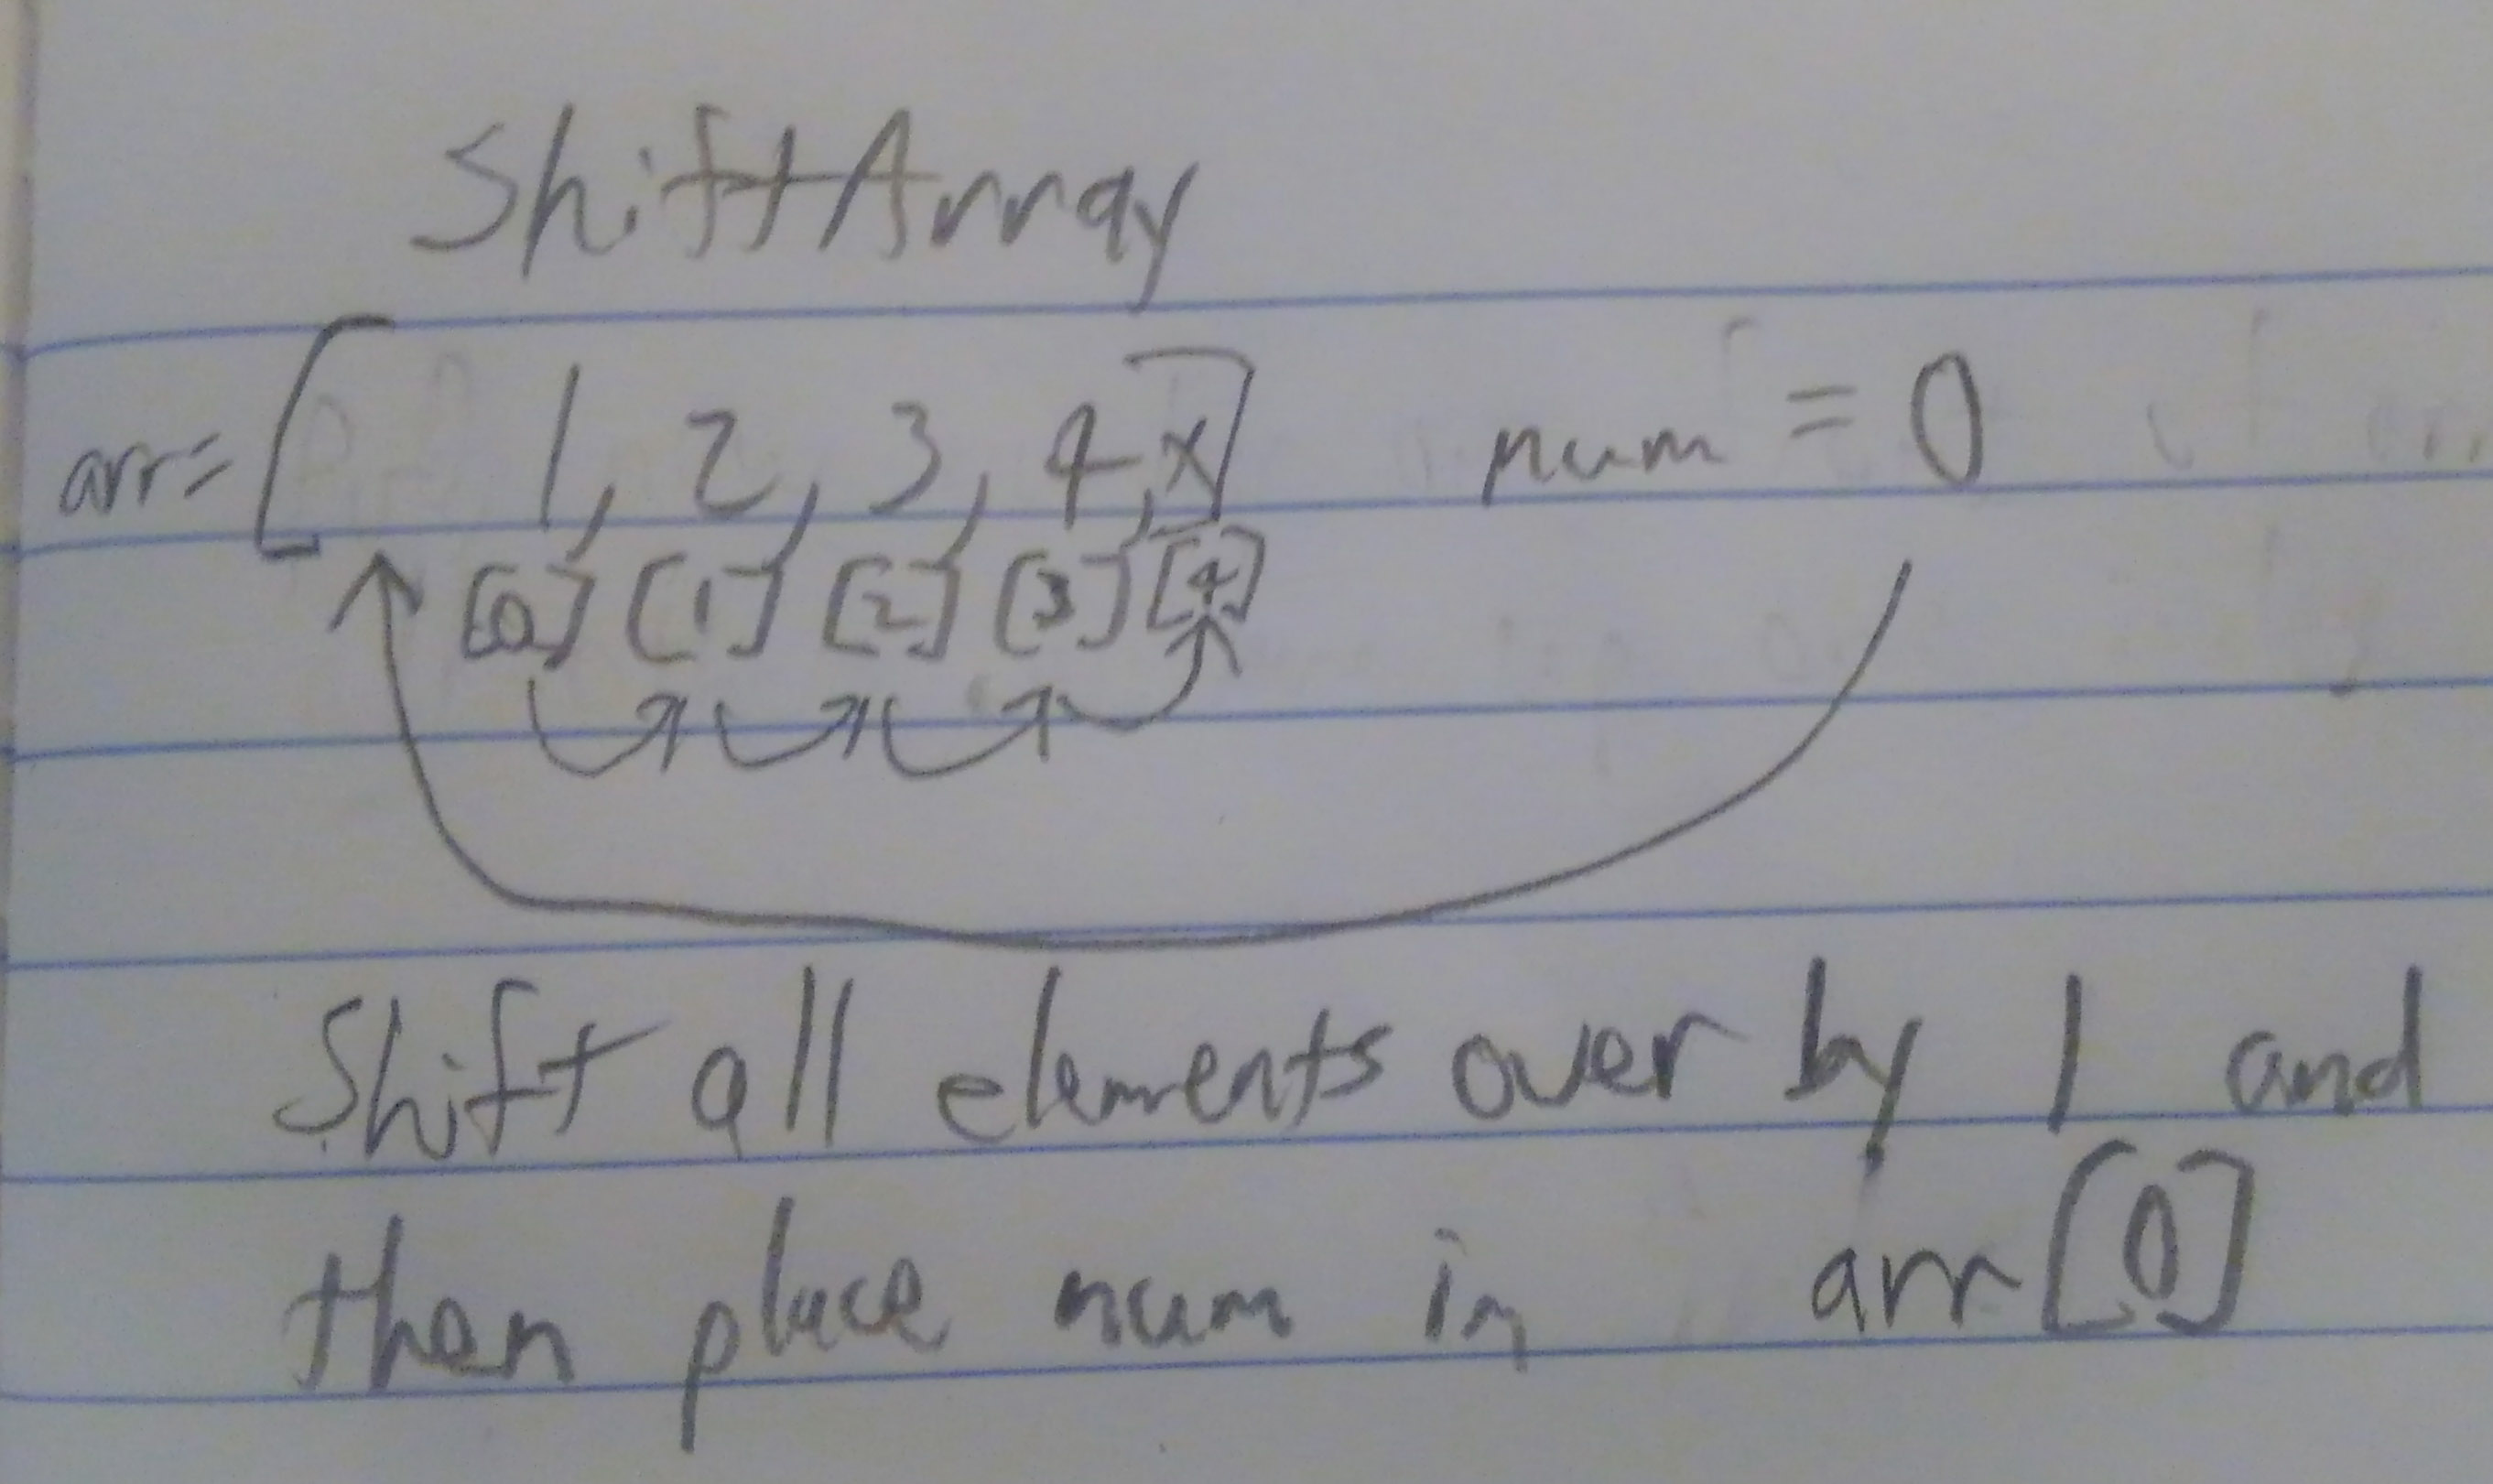 ShiftArray
arr= [ 1, 2, 3, 4, x] num = 0
[0] [1] [2] [3] [4]
Shift all elements over by 1 and
then place num in arr[0]